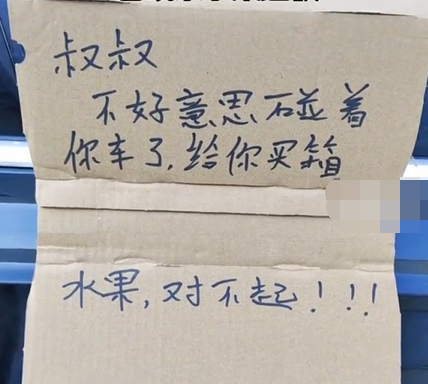 叔叔
不好意思碰着
你车了,给你买箱
水果,对不起!!!